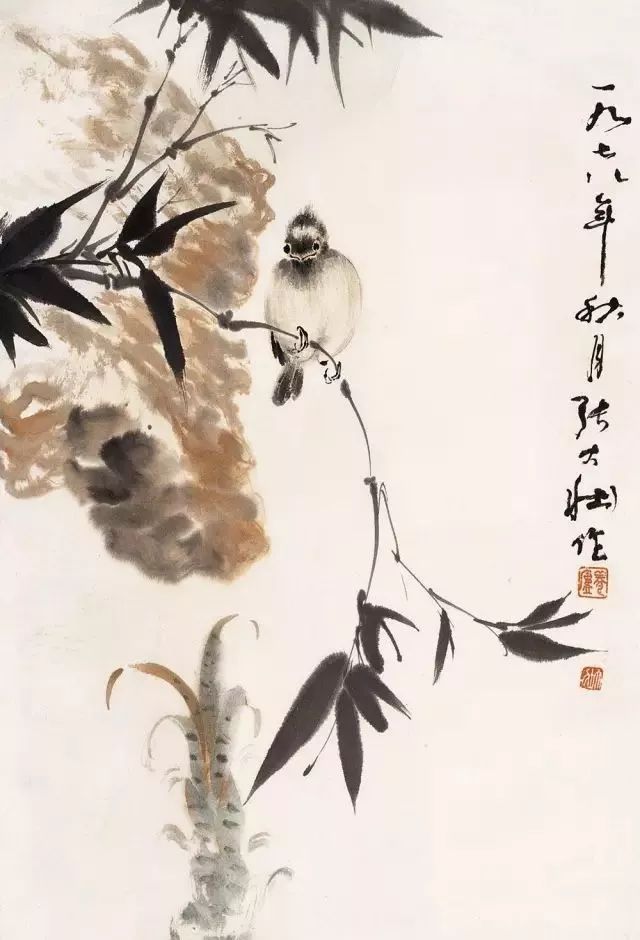 一九七八年秋月張大壯作
養廬